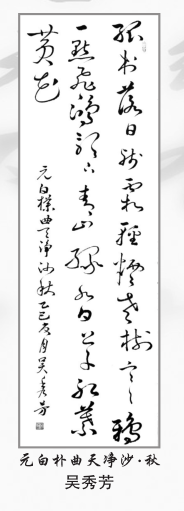 孤村落日残霞轻烟老树寒鸦
一点飞鸿影下青山绿水白草红叶
黄花
元白朴曲天净沙秋乙巳
吴秀芳
元白朴曲天净沙·秋
吴秀芳